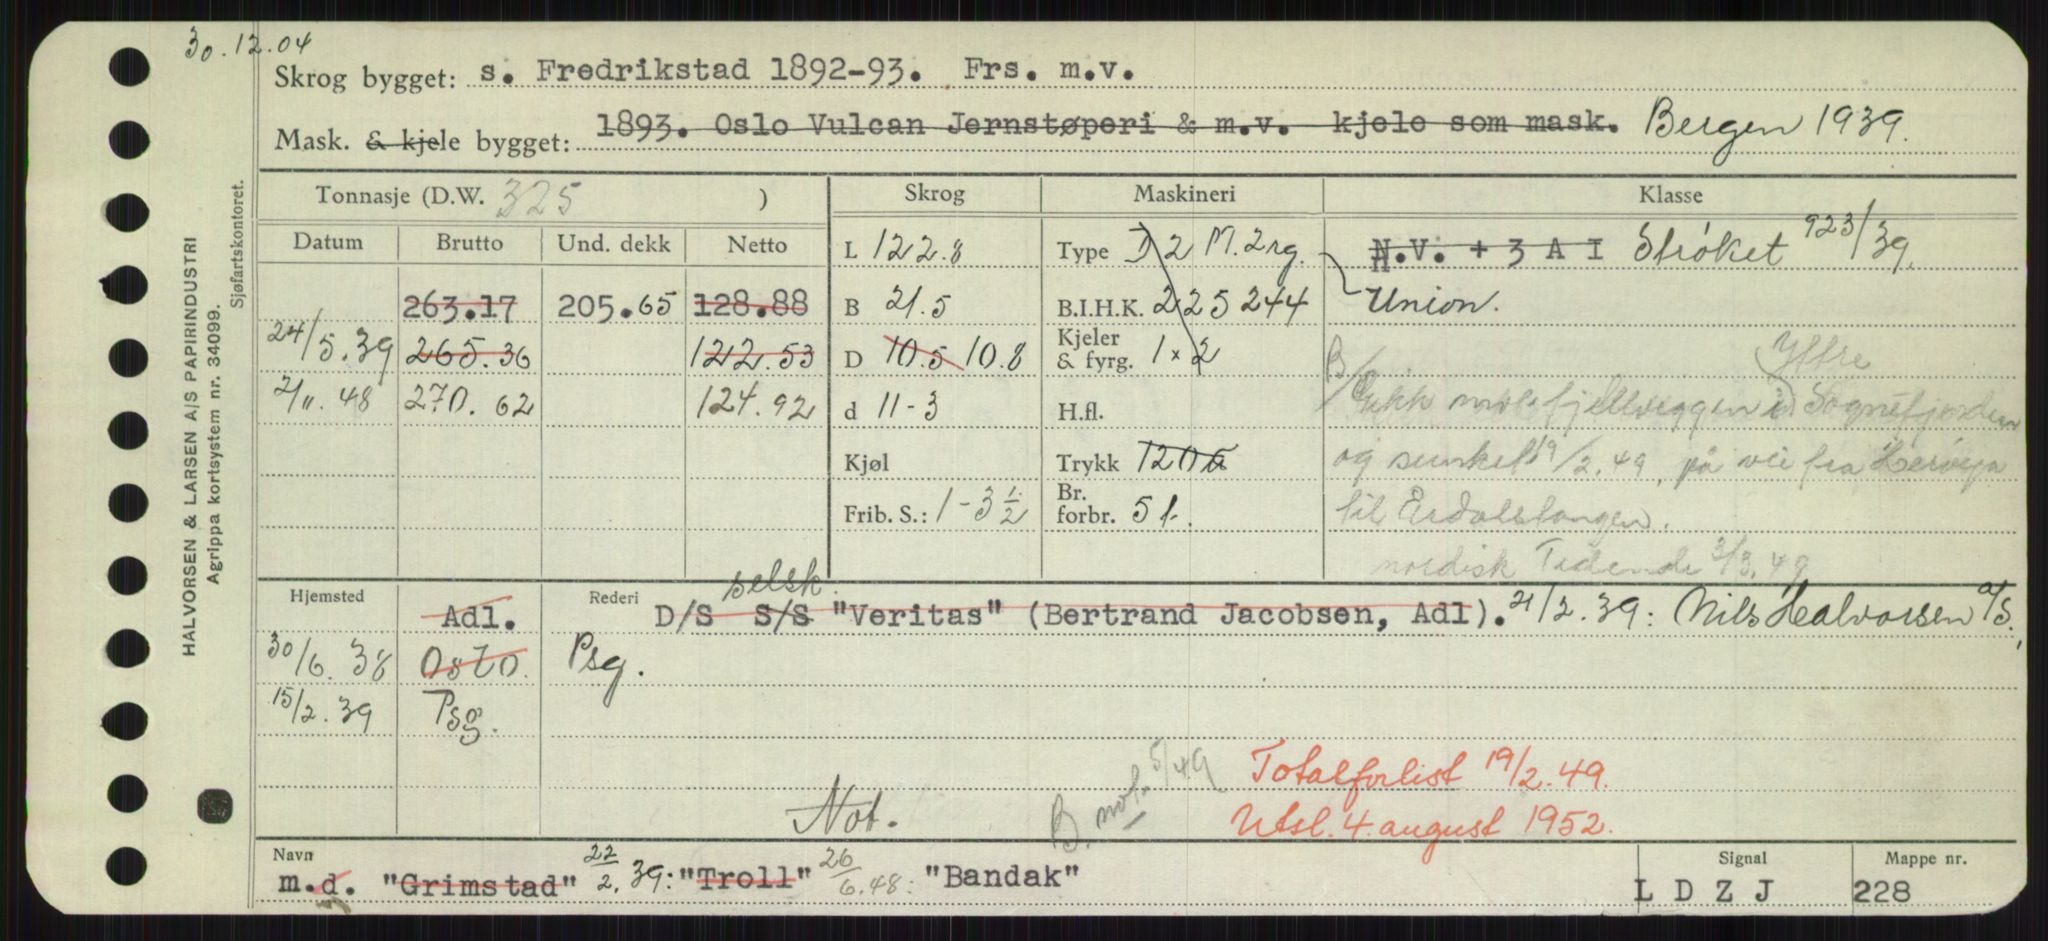 30.12.04
Skrog bygget: s. Fredrikstad 1892-93. Frs. m.v.
Mask. & kjele bygget: 1893. Oslo Vulcan Jernstøperi & m.v. kjele som mask. Bergen 1939.
HALVORSEN & LARSEN A/S PAPIRINDUSTRI
Agrippa kortsystem nr. 34099.
Sjøfartskontoret.
Tonnasje (D.W. 325 ) Skrog Maskineri Klasse
Datum Brutto Und. dekk Netto
L 122.8 Type D 2 M. 2rg. N.V. + 3 A I Strøket 923/39.
263.17 205.65 128.88 B 21.5 B.I.H.K. 225 244 Union.
24/5.39 265.36 122.53 D 10.5 10.8 Kjeler & fyrg. 1 x 2 Yttre
2/11.48 270.62 124.92 d 11-3 H.fl. B/Gikk mot fjellveggen i Sognefjorden
Kjøl Trykk 120 og sunket 19/2.49, på vei fra
Frib. S.: 1-3 1/2 Br. forbr. 5 t. til Erdalstangen.
nordisk Tidende 3/3.49
Hjemsted Adl. Rederi D/S S/S selsk. "Veritas" (Bertrand Jacobsen, Adl). 21/2.39: Nils Halvorsen A/S.,
30/6.38 Oslo. Psg.
15/2.39 Psg.
B. mot. 5/49 Totalforlist 19/2.49.
Not. Utsl. 4. august 1952.
Navn Signal Mappe nr.
m.d. "Grimstad" 22/2.39: "Troll" 26/6.48: "Bandak" L D Z J 228